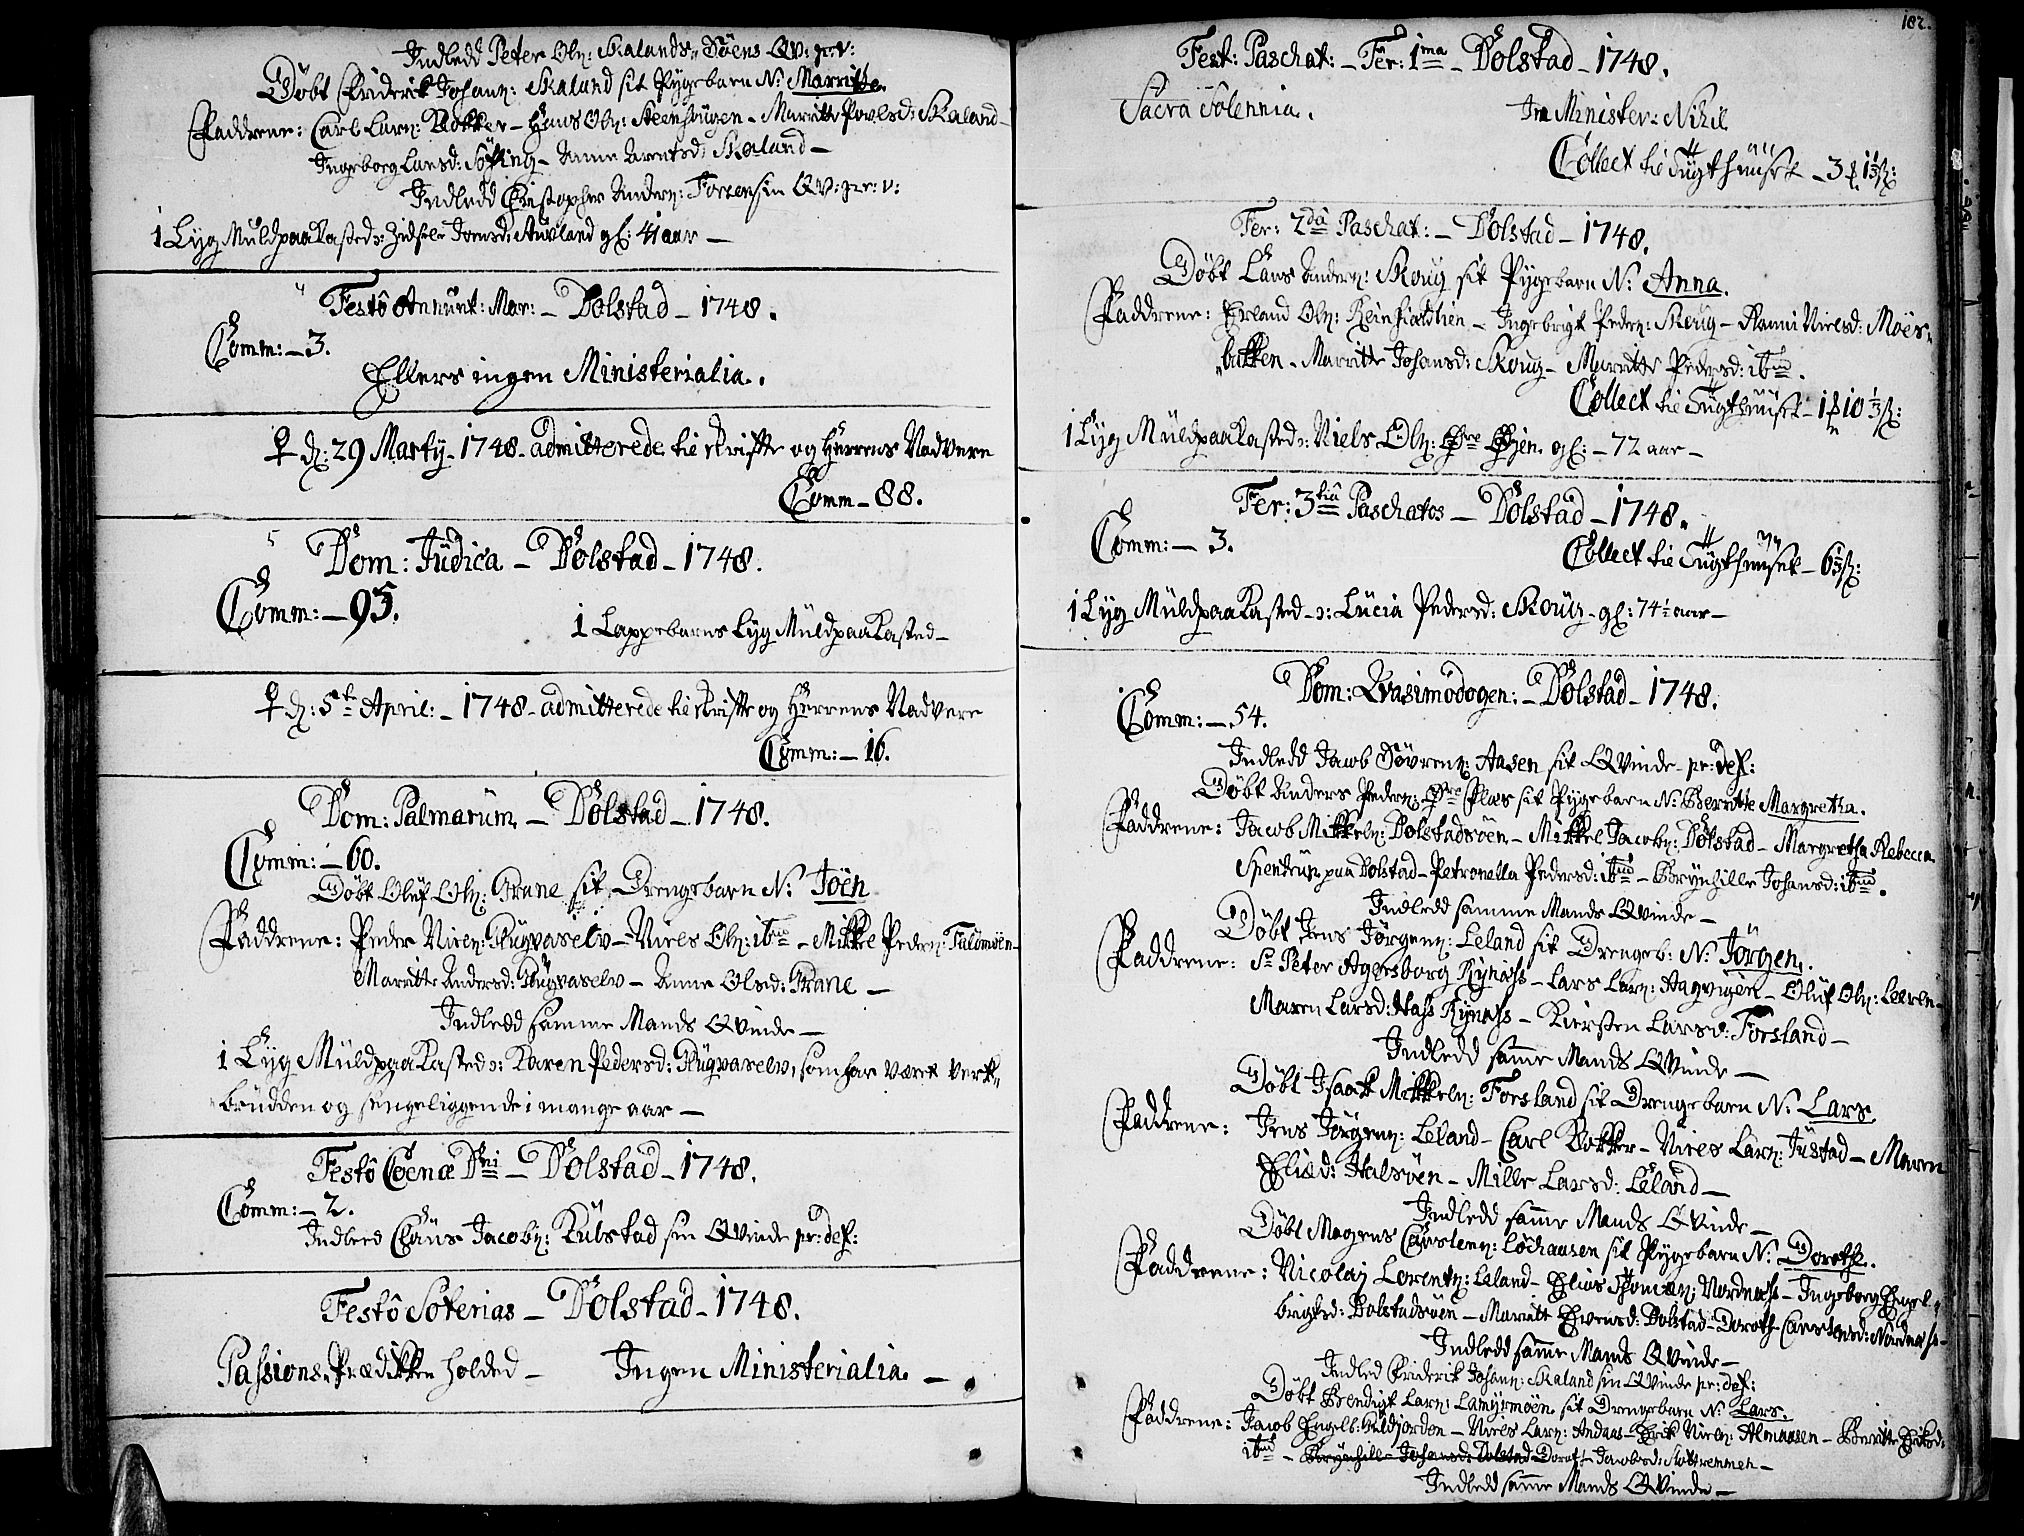 Indledd Peter Ols: Skalands-Söens QV: pr: v:
Döbt Friderik Johans: Skaland sit Pygebarn N: Marritte.
Faddrene: Carl Lars: Bokker – Hans Ols: Steensbugen – Marritte Povelsd: Skaland –
Ingeborg Larsd: Söfting – Anne Arentsd: Skaland –
Indledd Christopher Anders: Forsen sin QV: pr: v:
1 Lyg Muldpaakasted: Zidsele Jonsd: Auvland gl: 41 aar –
Festô Annunt: Mar: – Dolstad – 1748.
Comm: – 3.
Ellers ingen Ministerialia.
♀ d: 29 Martij – 1748 – admitterede til skriffte og Herrens Nadvere
Comm – 88.
Dom: Judica – Dolstad – 1748.
Comm: – 95.
1 Lappebarns Lyg Muldpaakasted –
♀ d: 5te April: – 1748 – admitterede til skriffte og Herrens Nadvere
Comm: – 16.
Dom: Palmarum – Dolstad – 1748.
Comm: – 60.
Döbt Oluf Ols: Grane sit Drengebarn N: Joen
Faddrene: Peder Niels: Flugvaselv – Niels Ols: ibm – Mikkel Peders: Talsmöen –
Marritte Andersd: Flugvaselv – Anne Olsd: Grane –
Indledd samme Mands QVinde –
1 Lyg Muldpaakasted: Karen Pedersd: Flugvaselv, som har været verk-
brudden og sengeliggende i mange aar –
Festô Coenæ Dni – Dolstad – 1748.
Comm: – 2.
Indledd Claus Jacobs: Kulstad sin QVinde pr: def:
Festô Soterias – Dolstad – 1748.
Passions-Prædikken holded – Ingen Ministerialia. –
102.
Fest: Paschat: – Fer: 1ma – Dolstad – 1748.
Sacra Solennia. In Minister: Nihil
Collect til Tugthuuset – 3 1½ß:
Fer: 2dâ Paschat: – Dolstad – 1748.
Döbt Lars Anders: Skoug sit Pygebarn N: Anna.
Faddrene: Erland Ols: Reinfialdlien – Ingebrigt Peders: Skoug – Nanni Nielsd: Moes-
bakken – Marritte Johansd: Skoug – Marritte Pedersd: ibm.
Collect til Tugthuuset – 1 10 ⅓ß:
1 Lyg Muldpaakasted: Niels Ols: Öfre gl: – 72 aar –
Fer: 3tiâ Paschatos – Dolstad – 1748.
Comm: – 3.
Collect til Tugthuuset – 6⅓ß:
1 Lyg Muldpaakasted: Lucia Pedersd: Skoug – gl: 74½ aar –
Dom: Qvasimodogen: – Dolstad – 1748.
Comm: – 54.
Indledd Jacob Sövrens: Aasen sit QVinde – pr: def:
Döbt Anders Peders: Öfre sit Pygebarn N: Berritte Margretha.
Faddrene: Jacob Mikkels: Dolstadsöen – Mikkel Jacobs: Dolstad – Margretha Rebecca
Spentrup paa Dolstad – Petronella Pedersd: ibm – Brynhille Johansd: ibm.
Indledd samme Mands QVinde –
Döbt Jens Jörgens: Leland sit Drengeb: N: Jörgen.
Faddrene: Sr Peter Agersborg Rynæss – Lars Lars: Hagvigen – Oluf Ols: Leeren –
Maren Larsd: Hass Rynæss – Kiersten Larsd: Forsland –
Indledd samme Mands QVinde –
Döbt Isaak Mikkels: Forsland sit Drengebarn N: Lars.
Faddrene: Jens Jörgens: Leland – Carl Bokker – Niels Lars: Justad – Maren
Elisd: Halsöen – Mille Larsd: Leland –
Indledd samme Mands QVinde –
Döbt Mogens Carstens: sit Pygebarn N: Doroth.
Faddrene: Nicolaj Lorents: Leland – Elias Thomas: Nordnæss – Ingeborg Engel-
brigtsd: Dolstadsöen – Marritt Evensd: Dolstad – Doroth: Carstensd: Nordnæss –
Indledd samme Mands QVinde –
Indled Friderik Johans: Skaland sin QVinde pr: def:
Döbt Bendigt Lars: sit Drengebarn N: Lars.
Faddrene: Jacob Engelb: – Niels Lars: Andaas – Erik Niels: Almaasen – Berritte Eriksd:
ibm – Brynhille Johansd: Dolstad – Doroth Jacobsd: –
Indledd samme Mands QVinde –